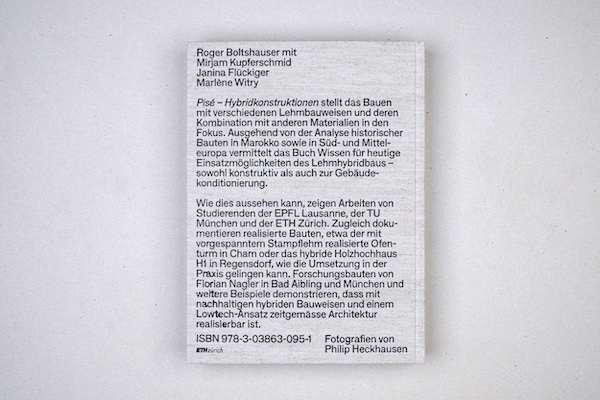 Roger Boltshauser mit
Mirjam Kupferschmid
Janina Flückiger
Marlène Witry
Pisé – Hybridkonstruktionen stellt das Bauen
mit verschiedenen Lehmbauweisen und deren
Kombination mit anderen Materialien in den
Fokus. Ausgehend von der Analyse historischer
Bauten in Marokko sowie in Süd- und Mittel-
europa vermittelt das Buch Wissen für heutige
Einsatzmöglichkeiten des Lehmhybridbaus –
sowohl konstruktiv als auch zur Gebäude-
konditionierung.
Wie dies aussehen kann, zeigen Arbeiten von
Studierenden der EPFL Lausanne, der TU
München und der ETH Zürich. Zugleich doku-
mentieren realisierte Bauten, etwa der mit
vorgespanntem Stampflehm realisierte Ofen-
turm in Cham oder das hybride Holzhochhaus
H1 in Regensdorf, wie die Umsetzung in der
Praxis gelingen kann. Forschungsbauten von
Florian Nagler in Bad Aibling und München und
weitere Beispiele demonstrieren, dass mit
nachhaltigen hybriden Bauweisen und einem
Lowtech-Ansatz zeitgemässe Architektur
realisierbar ist.
ISBN 978-3-03863-095-1
Fotografien von
Philip Heckhausen
ETH zürich